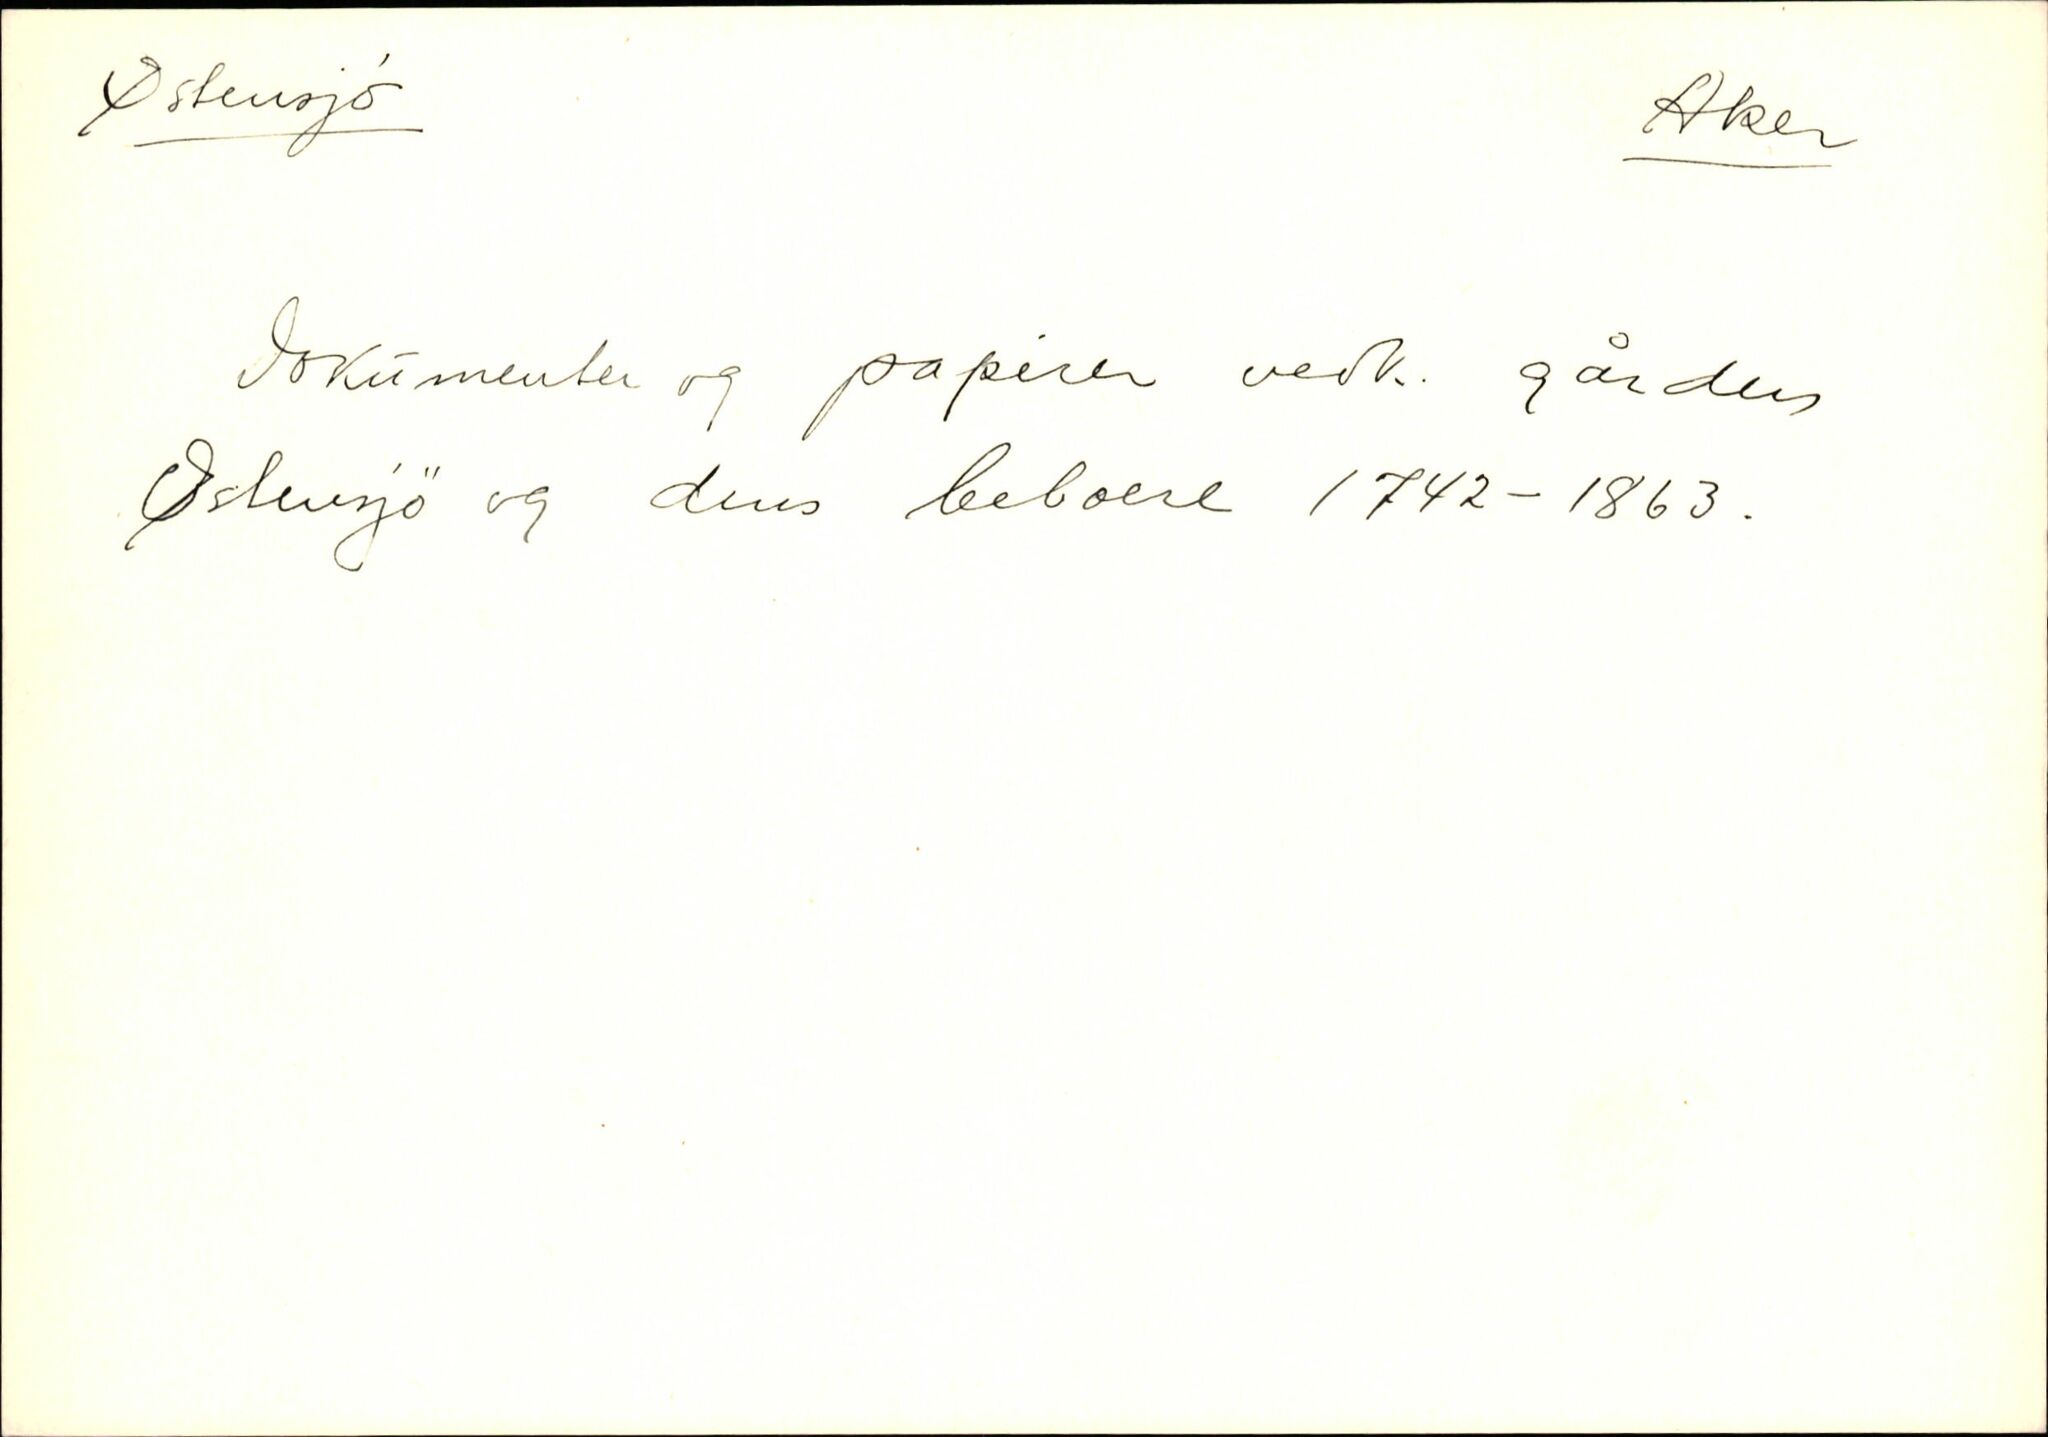 Østensjö Aker
Dokumenter og papirer vedk. gården
Østensjö og dens beboere 1742-1863.